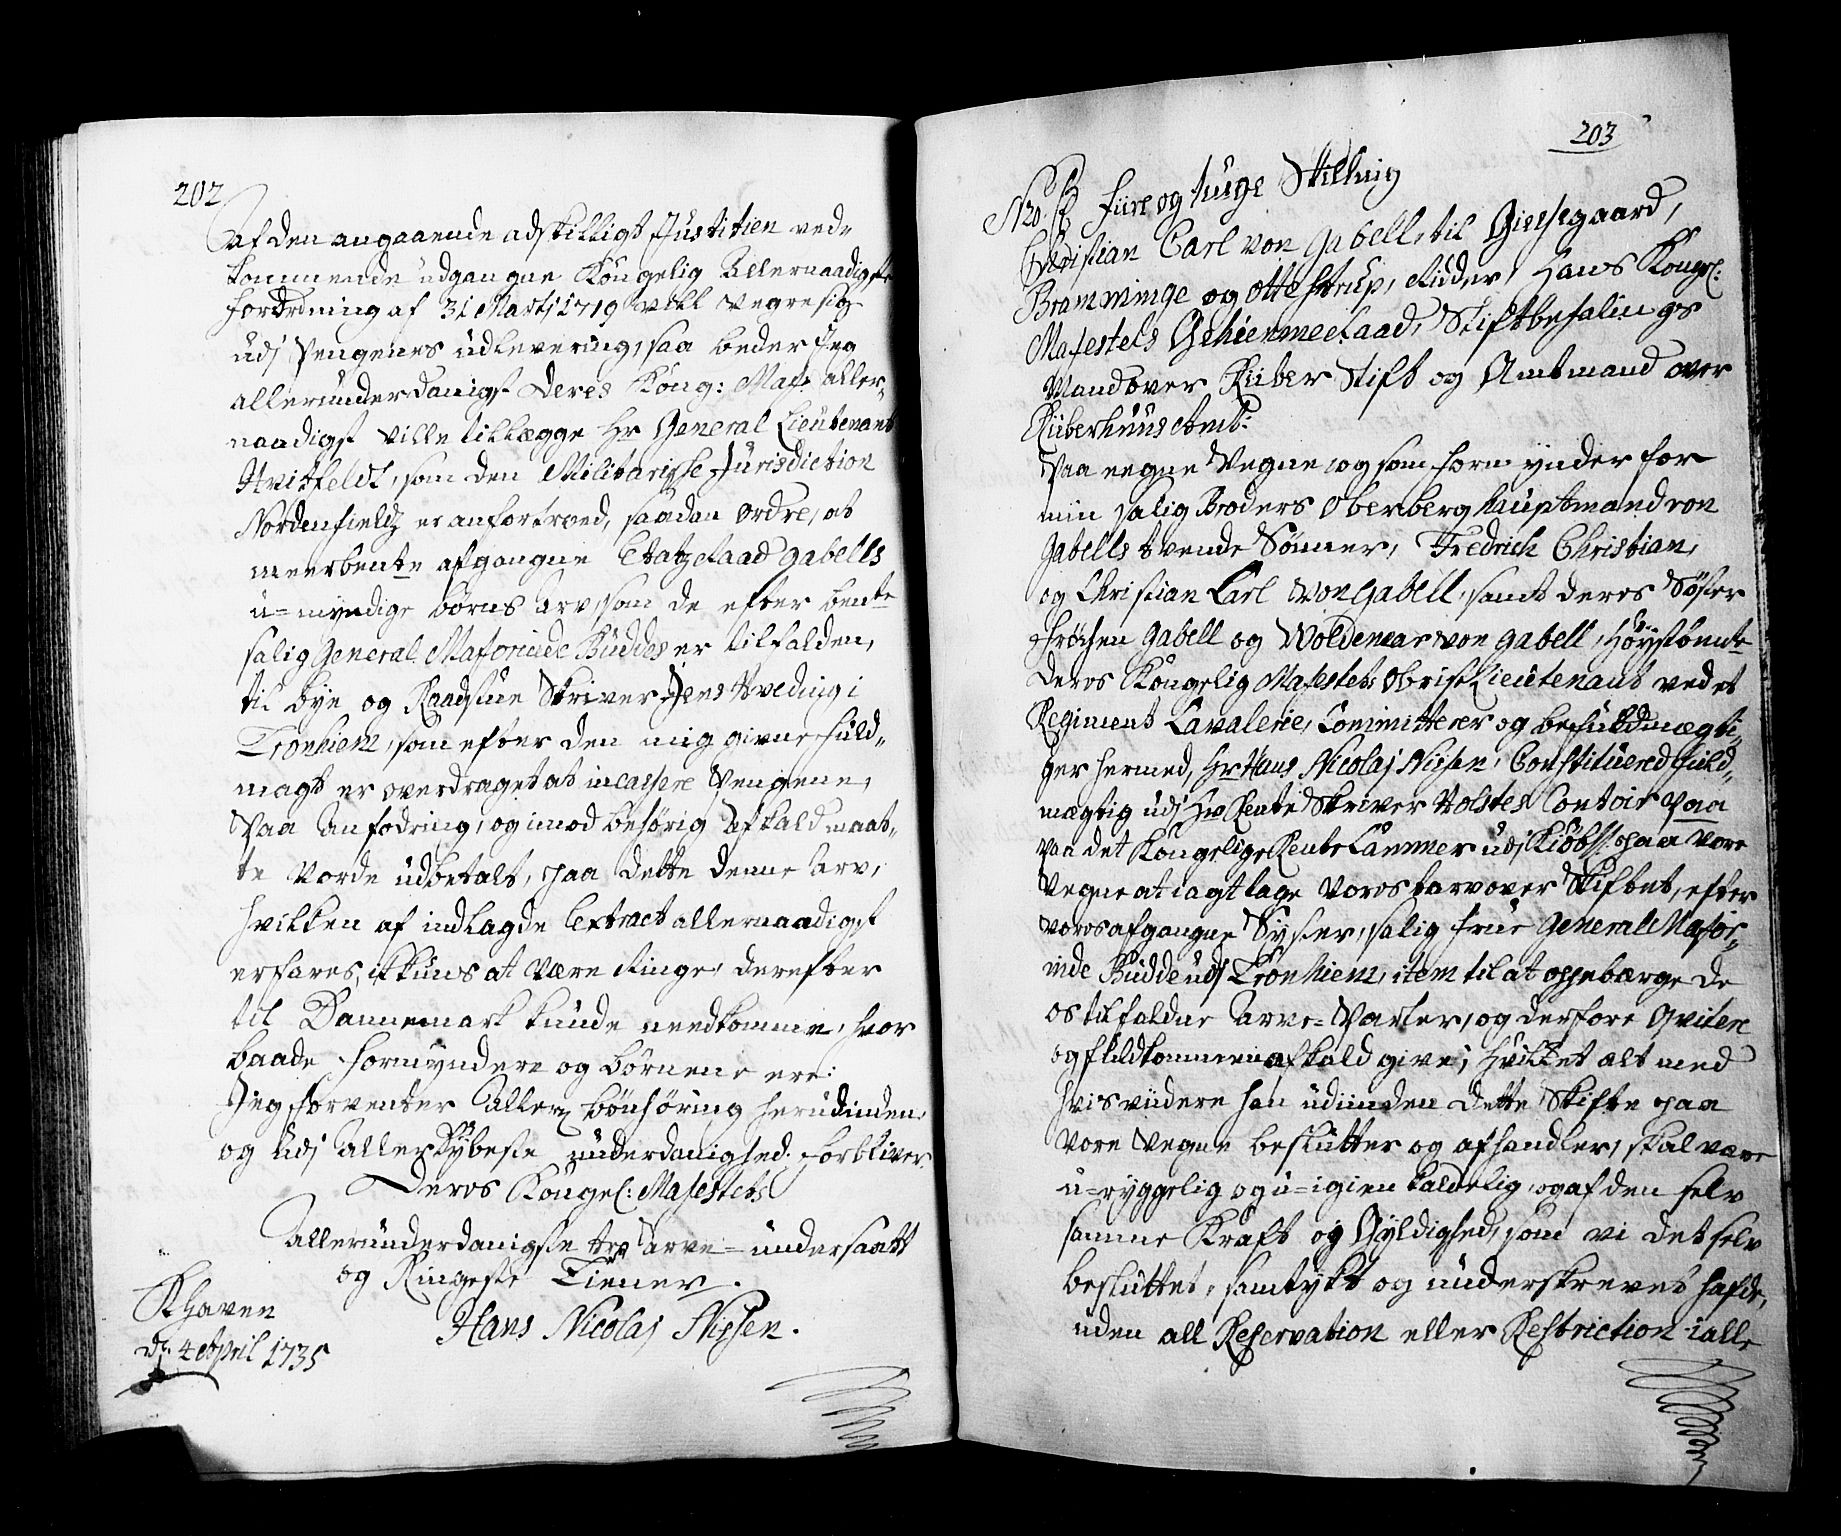 202
af den angaaende adskilligt Justitien ved-
kommende udgangne Kongelig Allernaadigste
fordrning af 31 Martj 1719 vill vegre sig
udj Pengenes udlevering, saa beder Jeg
allerunderdanigst Deres Kong: Maj: aller-
naadigst ville tillægge Hr General Lieutenant
Hvitfeldt, som den Militarische Jurisdiction
Nordenfieldz er anfortroed, saadan Ordre, at
meerbente afgangne Etatzraad Gabells
u=myndige børns Arv, som de efter bente
salig General Majorinde Buddes er tilfalden,
til bye og Raadstue Skriver Jens Hveding i
Tronhiem, som efter den mig givne fuld-
magt er overdraget at incassere Pengene,
Paa Anfodring, og imod behørig Afkald maat-
te vorde udbetalt, paa dette denne Arv,
hvilken af indlagde Extract allernaadigst
erfares, ikkuns at være Ringe, derefter
til Dannemark kunde needkomme, hvor
baade formyndere og børnene ere:
Jeg forventer Allern bønhøring herudinden,
og udj allerdybeste underdanighed forbliver
Deros Kongel: Majestets
Allerunderdanigste troe Arve=undersaatt
og Ringeste Tiener.
Hans Nicolaj Nissen.
Khaven
d. 4 April 1735
203
No. fiire og tuge Skilling
Christian Carl von Gabell, til Giessegaard,
Bramminge og Ottestrup, Ridder, Hans Kongel:
Majestets Geheimeraad, Stiftbefalings
Mand over Riiber Stift og Amtmand over
Riiberhuus Amt:
Paa eegne Vegne og som formynder for
min salig Broders Oberberghauptmand von
Gabells tvende Sønner, Fredrich Christian,
og Christian Carl von Gabell, samt deres Søster
Frøchen Gabell og Woldemar von Gabell, Høystbemte
Deros Kongelig Majestets Obrist Lieutenant ved et
Regiment Cavalerie, Committerer og befuldmægti-
ger hermed, Hr Hans Nicolaj Nissen, Constituered fuld-
mægtig udj Hr Rente Skriver Holstes Contoir paa
paa det Kongelige Rente Cammer udj Kiøbh: paa vore
Vegne at iagttage voros tarv over Skiftet, efter
voros afgangne Syster, salig frue General Major-
inde Budde udj Tronhiem, item til at oppebærge de
os tilfaldne Arve=Parter, og derfore Qvitere
og fuldkommen afkald give, hvilket alt med
hvis viidere han udiinden dette Skifte paa
vore Vegne beslutter og afhandler, skal være
u=ryggelig og u=igienkaldelig, og af den selv
samme Kraft og Gyldighed, som vi det selv
besluttet, samtykt og underskrevet hafde,
uden all Reservation eller Restriction i alle